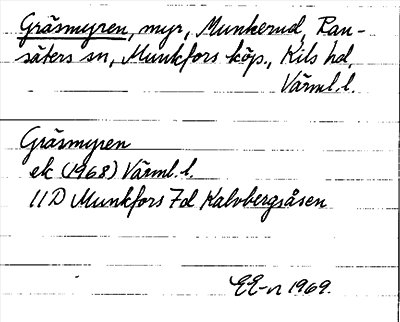 Gräsmyren, myr, Munkerud, Ran-
säters sn, Munkfors köp., Kils hd,
Värml. l.
Gräsmyren
ek (1968) Värml. l.
11D Munkfors 7d Kalvbergsåsen
EE-n 1969.